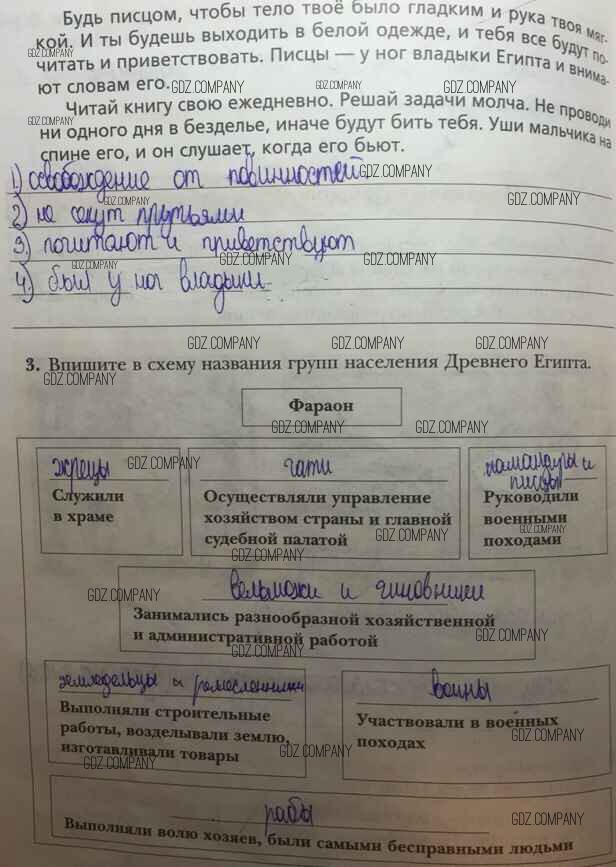 Будь писцом, чтобы тело твоё было гладким и рука твоя мяг-
кой. И ты будешь выходить в белой одежде, и тебя все будут по-
читать и приветствовать. Писцы — у ног владыки Египта и внима-
ют словам его.
Читай книгу свою ежедневно. Решай задачи молча. Не проводи
ни одного дня в безделье, иначе будут бить тебя. Уши мальчика на
спине его, и он слушает, когда его бьют.
1) освобождение от повинностей.
2) не секут прутьями
3) почитают и приветствуют
4) был у ног владыки
GDZ.COMPANY
3. Впишите в схему названия групп населения Древнего Египта.
Фараон
жрецы
Служили
в храме
чати
Осуществляли управление
хозяйством страны и главной
судебной палатой
командиры и
писцы
Руководили
военными
походами
вельможи и чиновники
Занимались разнообразной хозяйственной
и административной работой
земледельцы и ремесленники
Выполняли строительные
работы, возделывали землю,
изготавливали товары
воины
Участвовали в военных
походах
рабы
Выполняли волю хозяев, были самыми бесправными людьми